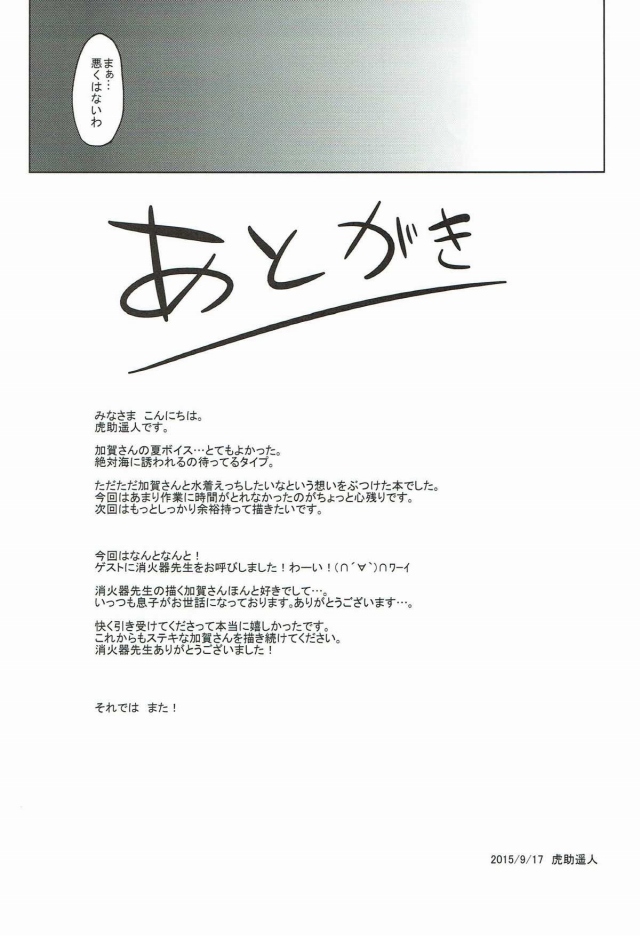 まぁ…
悪くはないわ
あとがき
みなさま　こんにちは。
虎助遥人です。
加賀さんの夏ボイス…とてもよかった。
絶対海に誘われるの待ってるタイプ。
ただただ加賀さんと水着えっちしたいなという想いをぶつけた本でした。
今回はあまり作業に時間がとれなかったのがちょっと心残りです。
次回はもっとしっかり余裕持って描きたいです。
今回はなんとなんと！
ゲストに消火器先生をお呼びしました！わーい！(∩´∀`)∩ﾜｰｲ
消火器先生の描く加賀さんほんと好きでして…。
いっつも息子がお世話になっております。ありがとうございます…。
快く引き受けてくださって本当に嬉しかったです。
これからもステキな加賀さんを描き続けてください。
消火器先生ありがとうございました！
それでは　また！
2015/9/17　虎助遥人